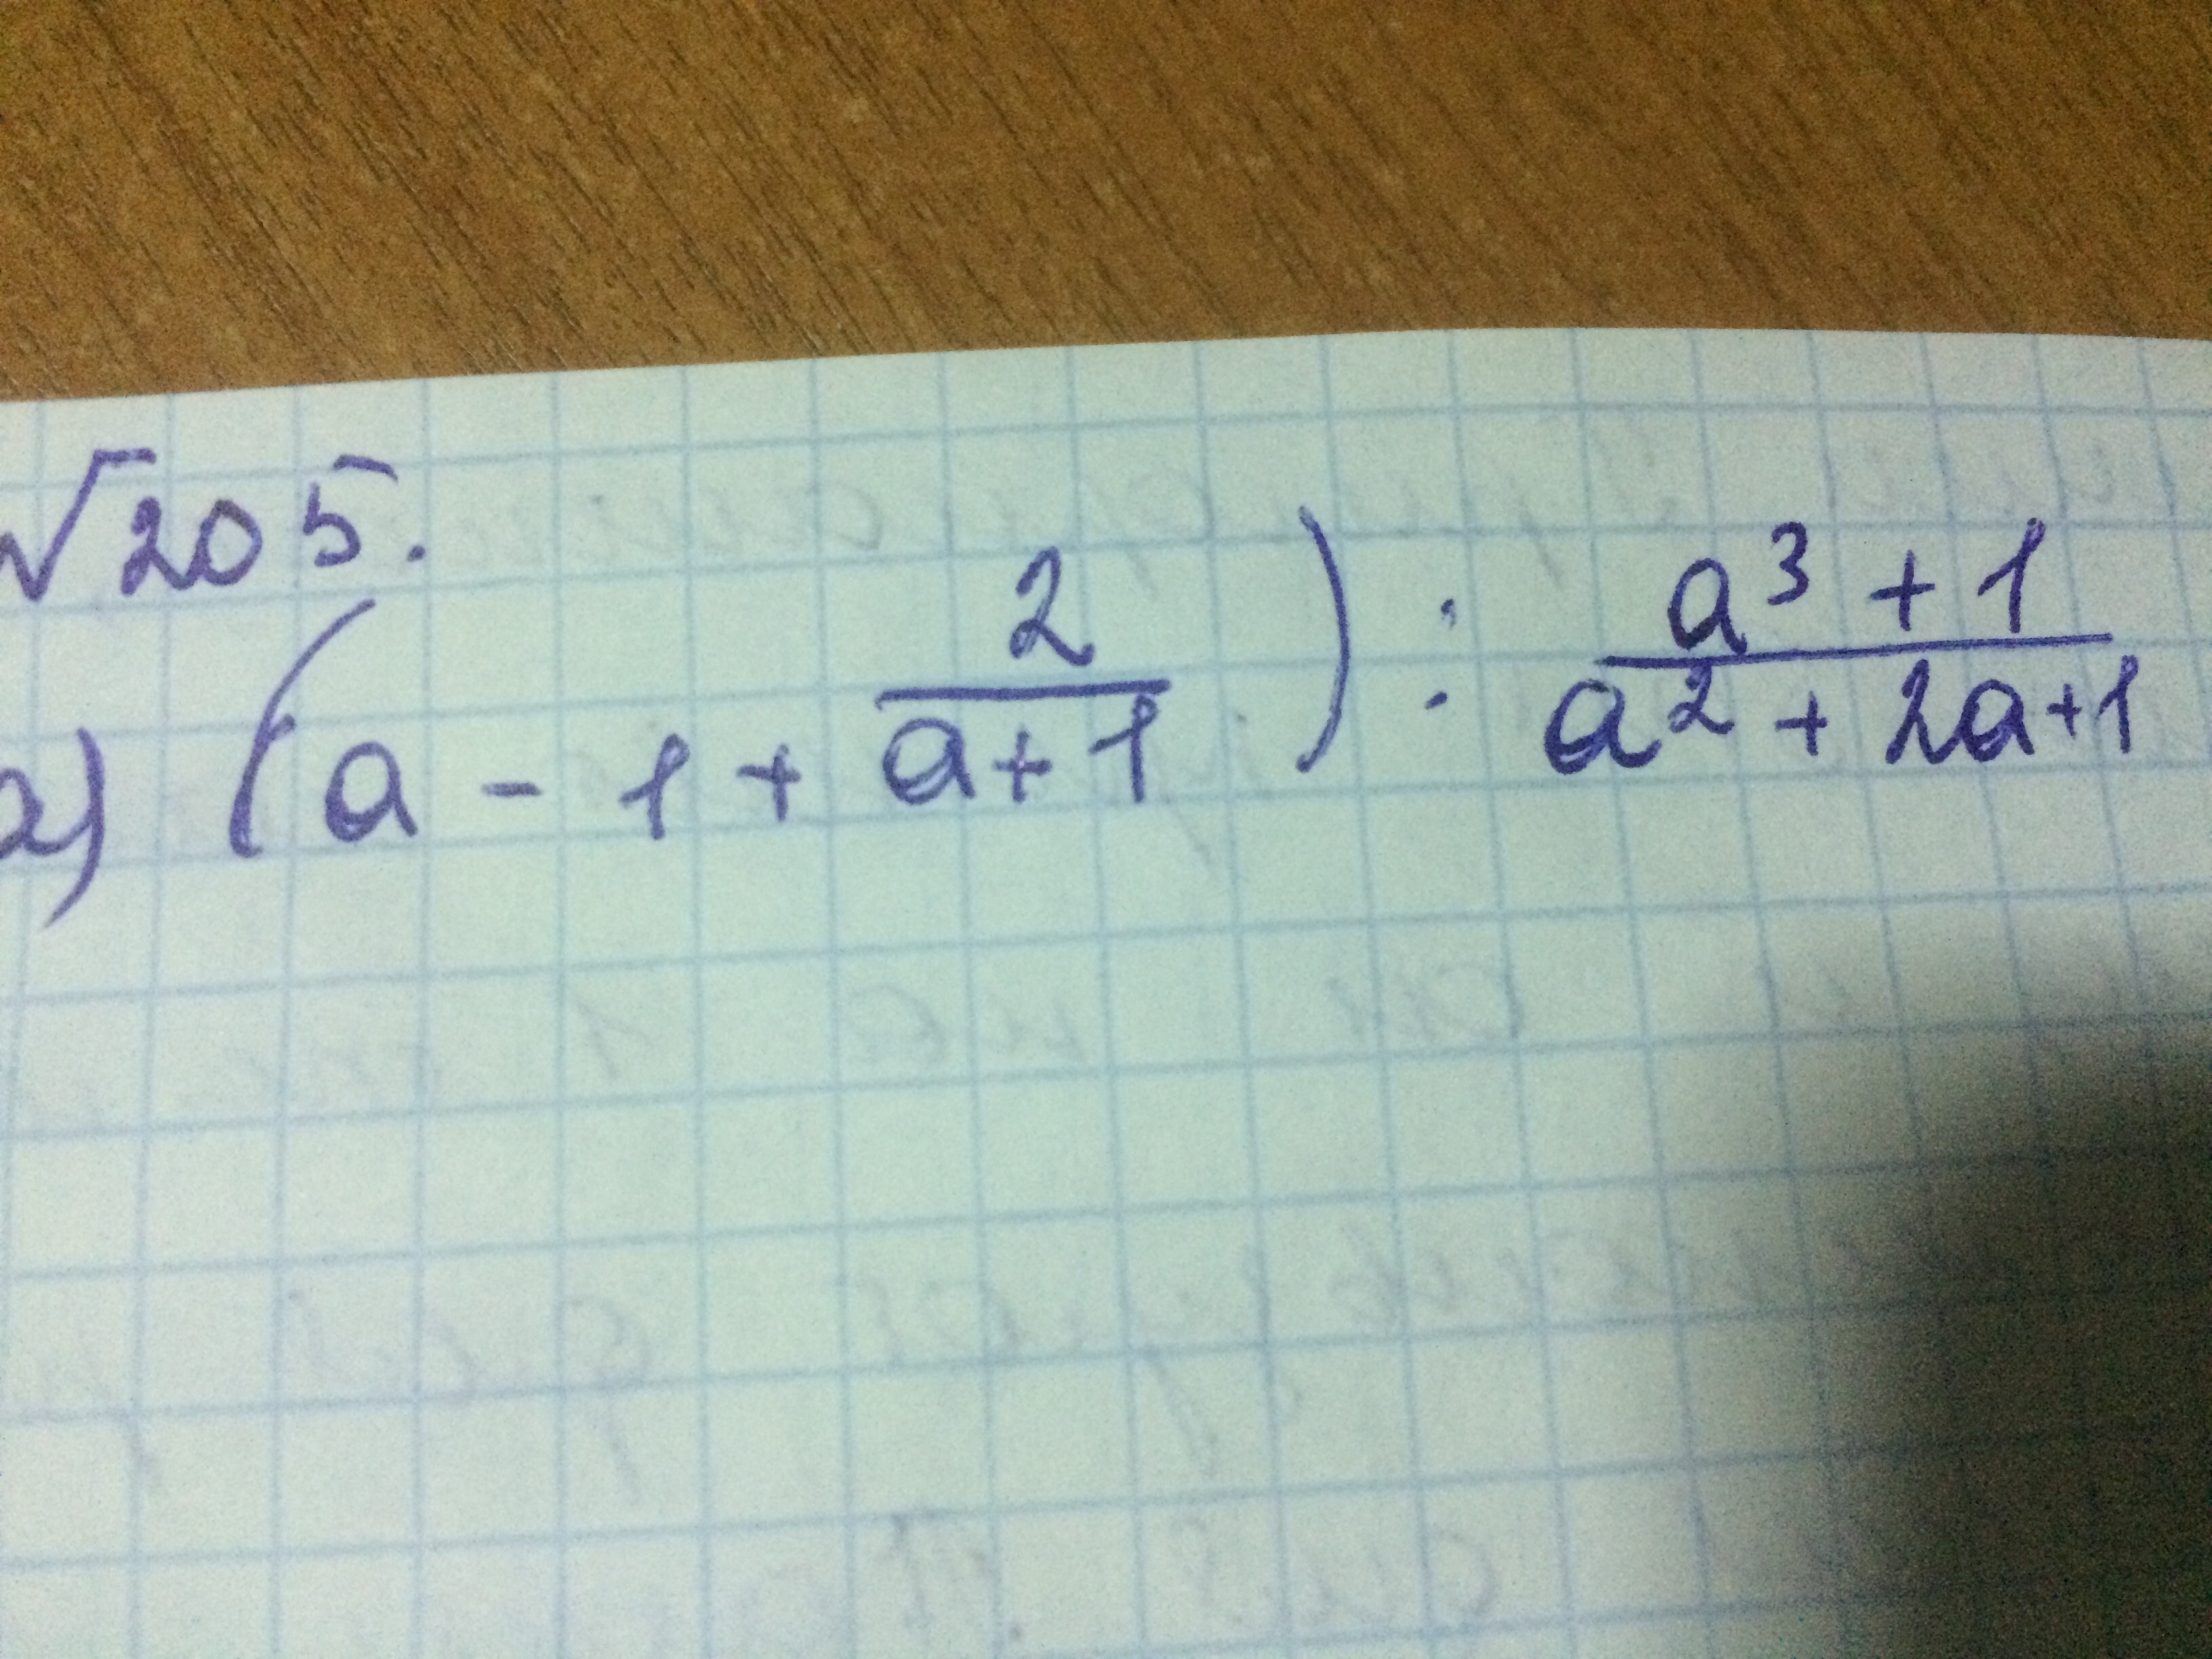 √205.
а) (a - 1 + 2/(a+1)) : (a³ + 1)/(a² + 2a+1)